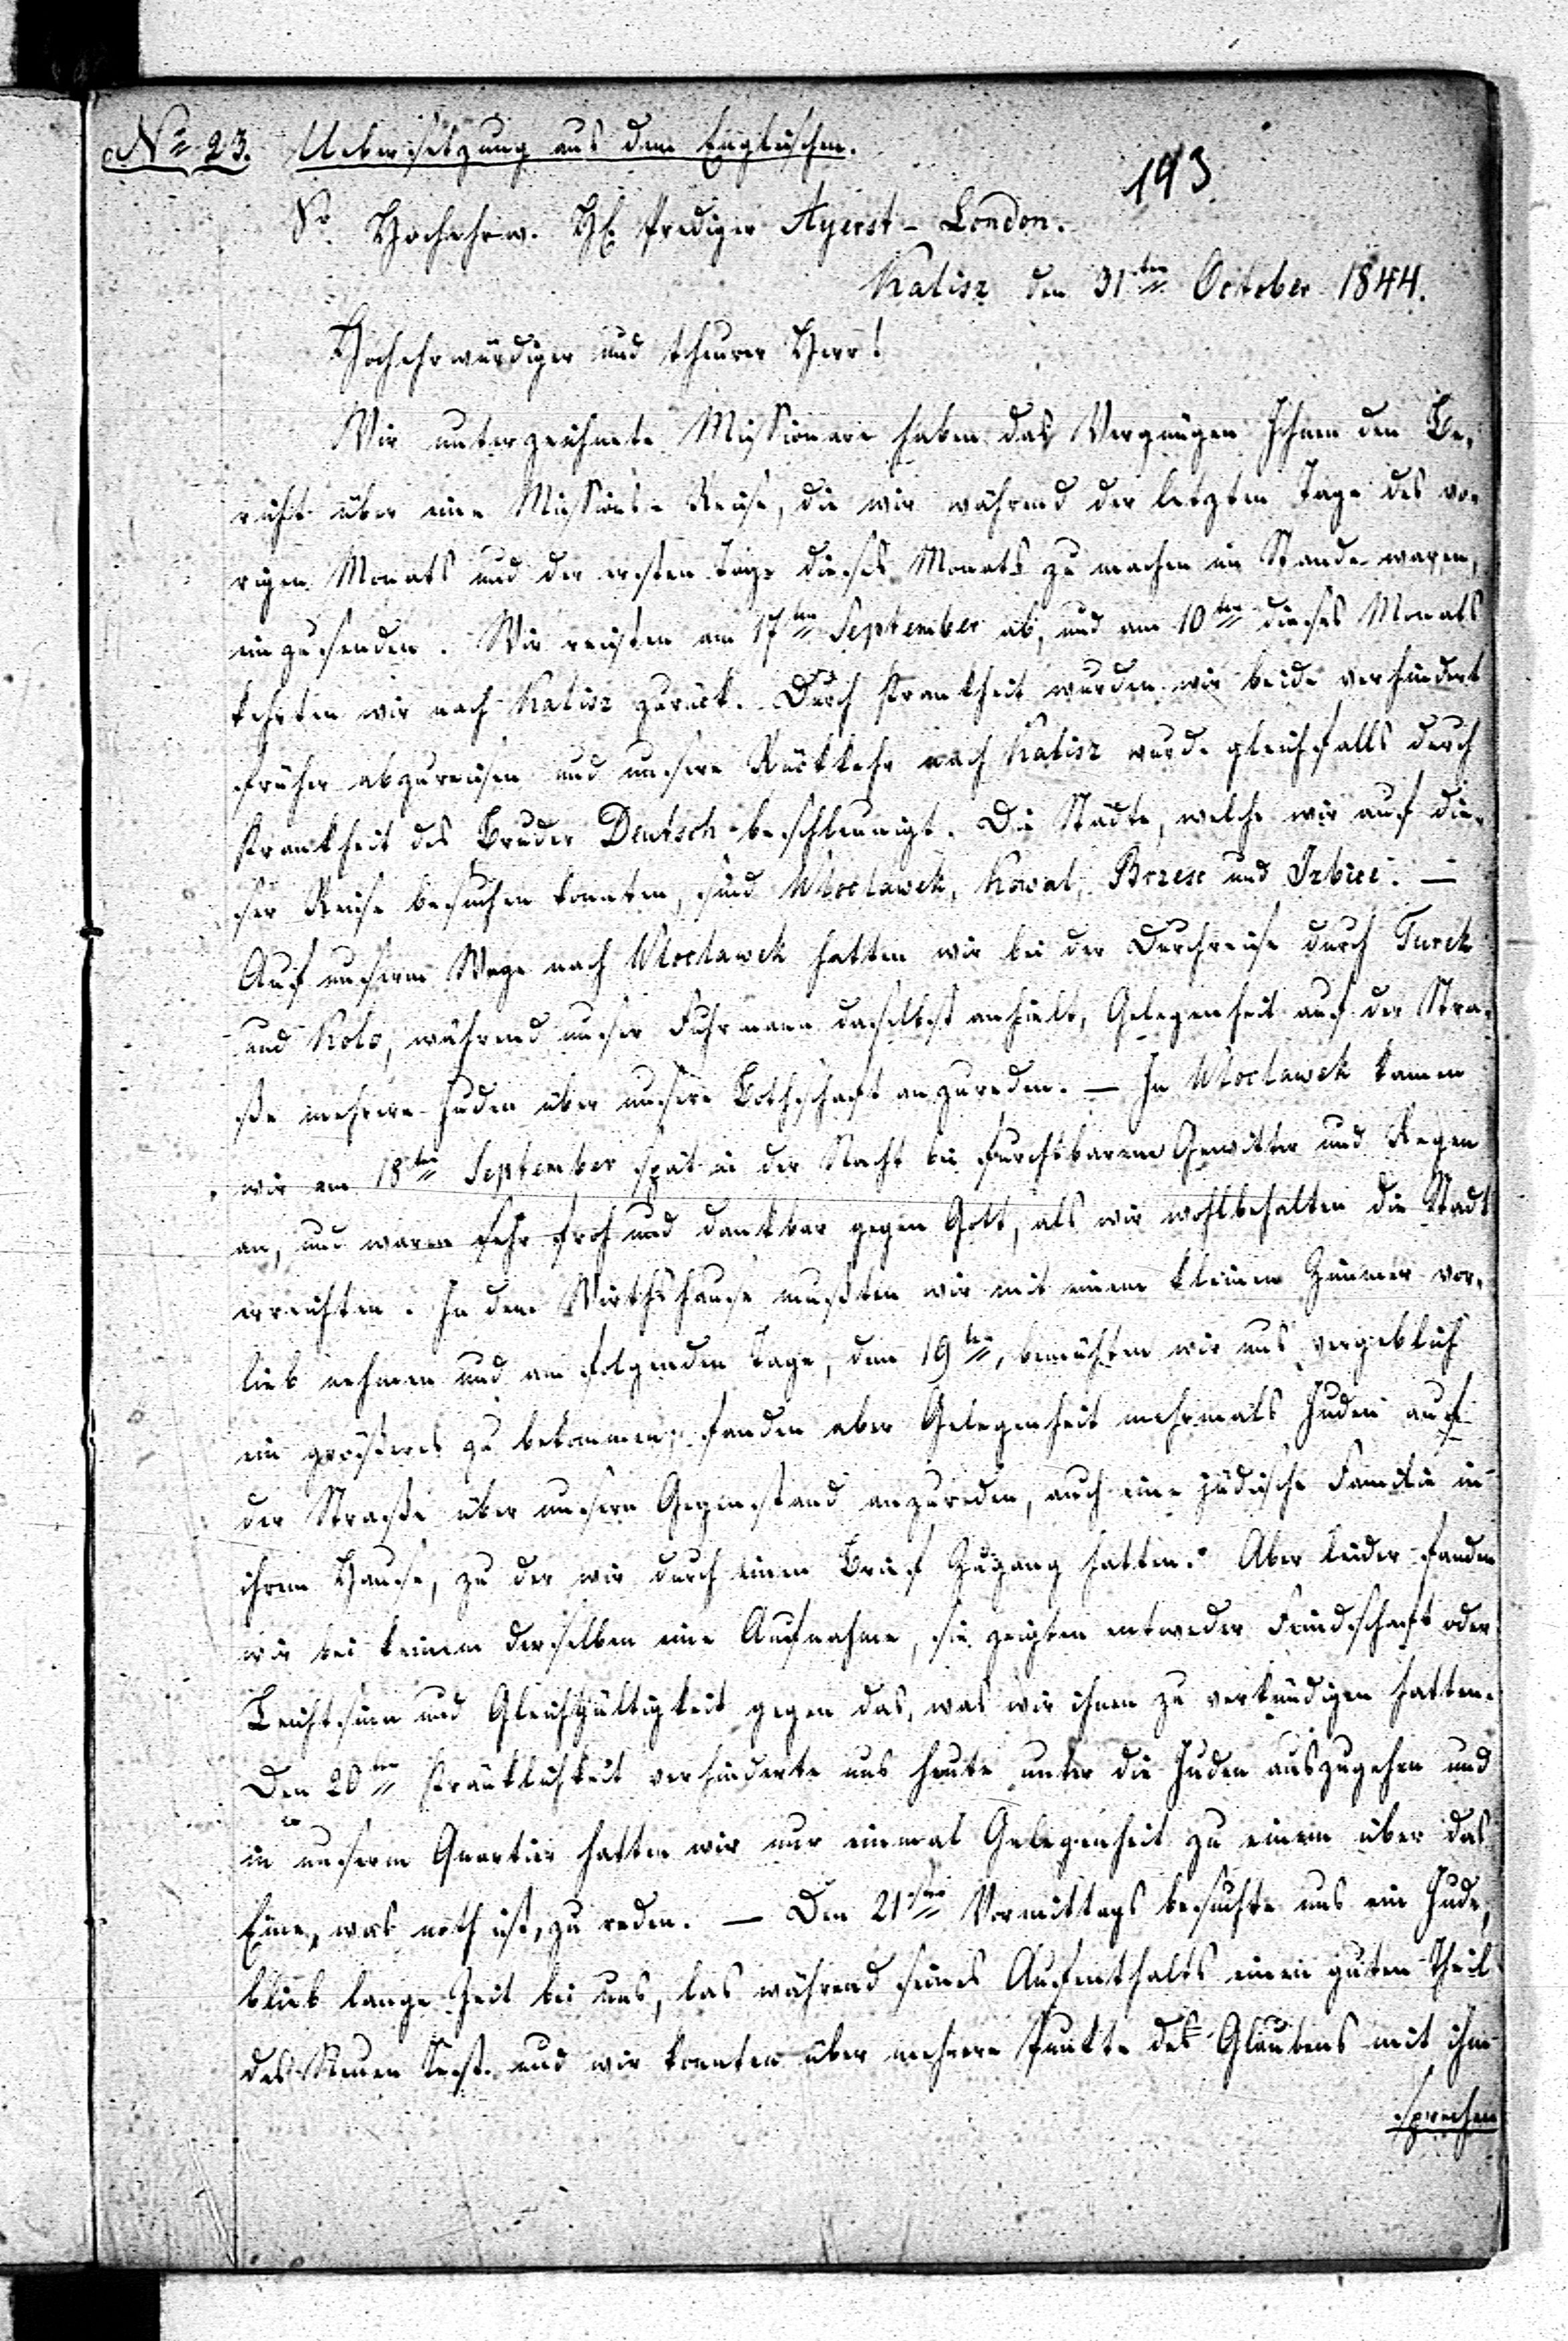 No 23. Uebersetzung aus dem Englischen.
193
Sr. Hochehrw. H. Prediger Ayerst - London.
Kalisz den 31ten October 1844.
Hochehrwürdiger und theurer Herr!
Wir unterzeichnete Missionare haben das Vergnügen Ihnen den Be-
richt über eine Missions-Reise, die wir während der letzten Tage des vo-
rigen Monats und der ersten Tage dieses Monats zu machen im Stande waren,
einzusenden. Wir reisten am 17ten September ab, und am 10ten dieses Monats
kehrten wir nach Kalisz zurück. Durch Krankheit wurden wir beide verhindert
früher abzureisen und unsere Rückkehr nach Kalisz wurde gleichfalls durch
Krankheit des Bruder Deutsch beschleunigt. Die Städte, welche wir auf die-
ser Reise besuchen konnten, sind Wloclawek, Kowal, Brzesc und Izbice. —
Auf unserm Wege nach Wloclawek hatten wir bei der Durchreise durch Turek
und Kolo, während unser Fuhrmann daselbst anhielt, Gelegenheit auf der Stra-
ße mehrere Juden über unsere Bothschaft anzureden. — In Wloclawek kamen
wir am 18ten September spät in der Nacht bei furchtbarem Gewitter und Regen
an, und waren sehr froh und dankbar gegen Gott, als wir wohlbehalten die Stadt
erreichten. In dem Wirthshause mußten wir mit einem kleinen Zimmer vor-
lieb nehmen und am folgenden Tage, dem 19ten, bemühten wir uns vergeblich
ein größeres zu bekommen; fanden aber Gelegenheit mehrmals Juden auf
der Straße über unsern Gegenstand anzureden, auch eine jüdische Familie in
ihrem Hause, zu der wir durch einen Brief Zugang hatten. Aber leider fanden
wir bei keinem derselben eine Aufnahme, sie zeigten entweder Feindschaft oder
Leichtsinn und Gleichgültigkeit gegen das, was wir ihnen zu verkündigen hatten.
Den 20ten Kränklichkeit verhinderte uns heute unter die Juden auszugehen und
in unserm Quartier hatten wir nur einmal Gelegenheit zu einem über das
Eine, was noth ist, zu reden. — Den 21sten Vormittags besuchte uns ein Jude,
blieb lange Zeit bei uns, las während seines Aufenthalts einen guten Theil
des Neuen Test. und wir konnten über mehrere Punkte des Glaubens mit ihm
sprechen